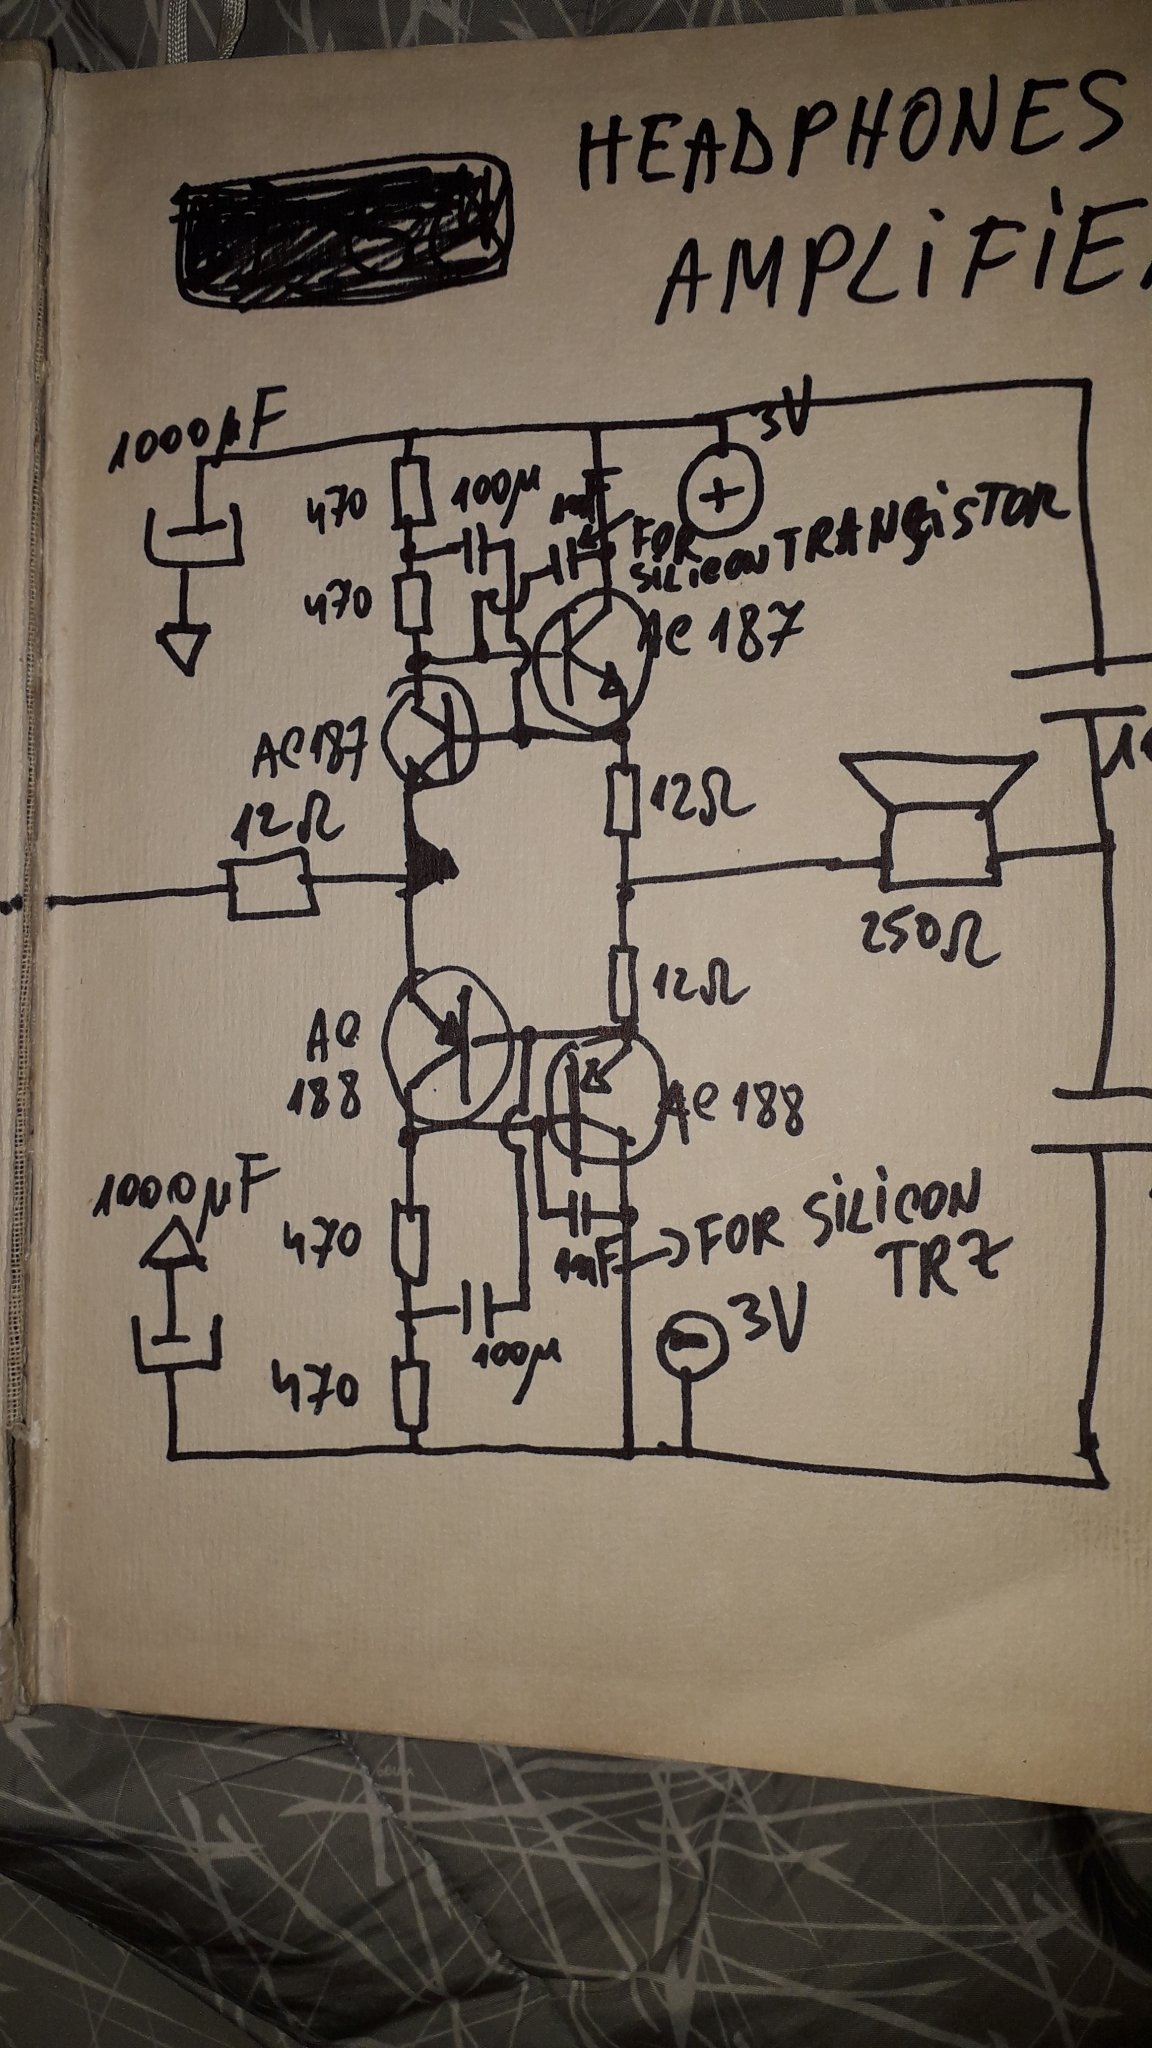 HEADPHONES
AMPLIFIE
1000µF
3V
470
100µ
1nF
FOR
SILICON TRANSISTOR
470
AC 187
AC187
12Ω
12Ω
250Ω
12Ω
AC
188
AC 188
1000µF
470
1nF
FOR SILICON
TRZ
3V
100µ
470